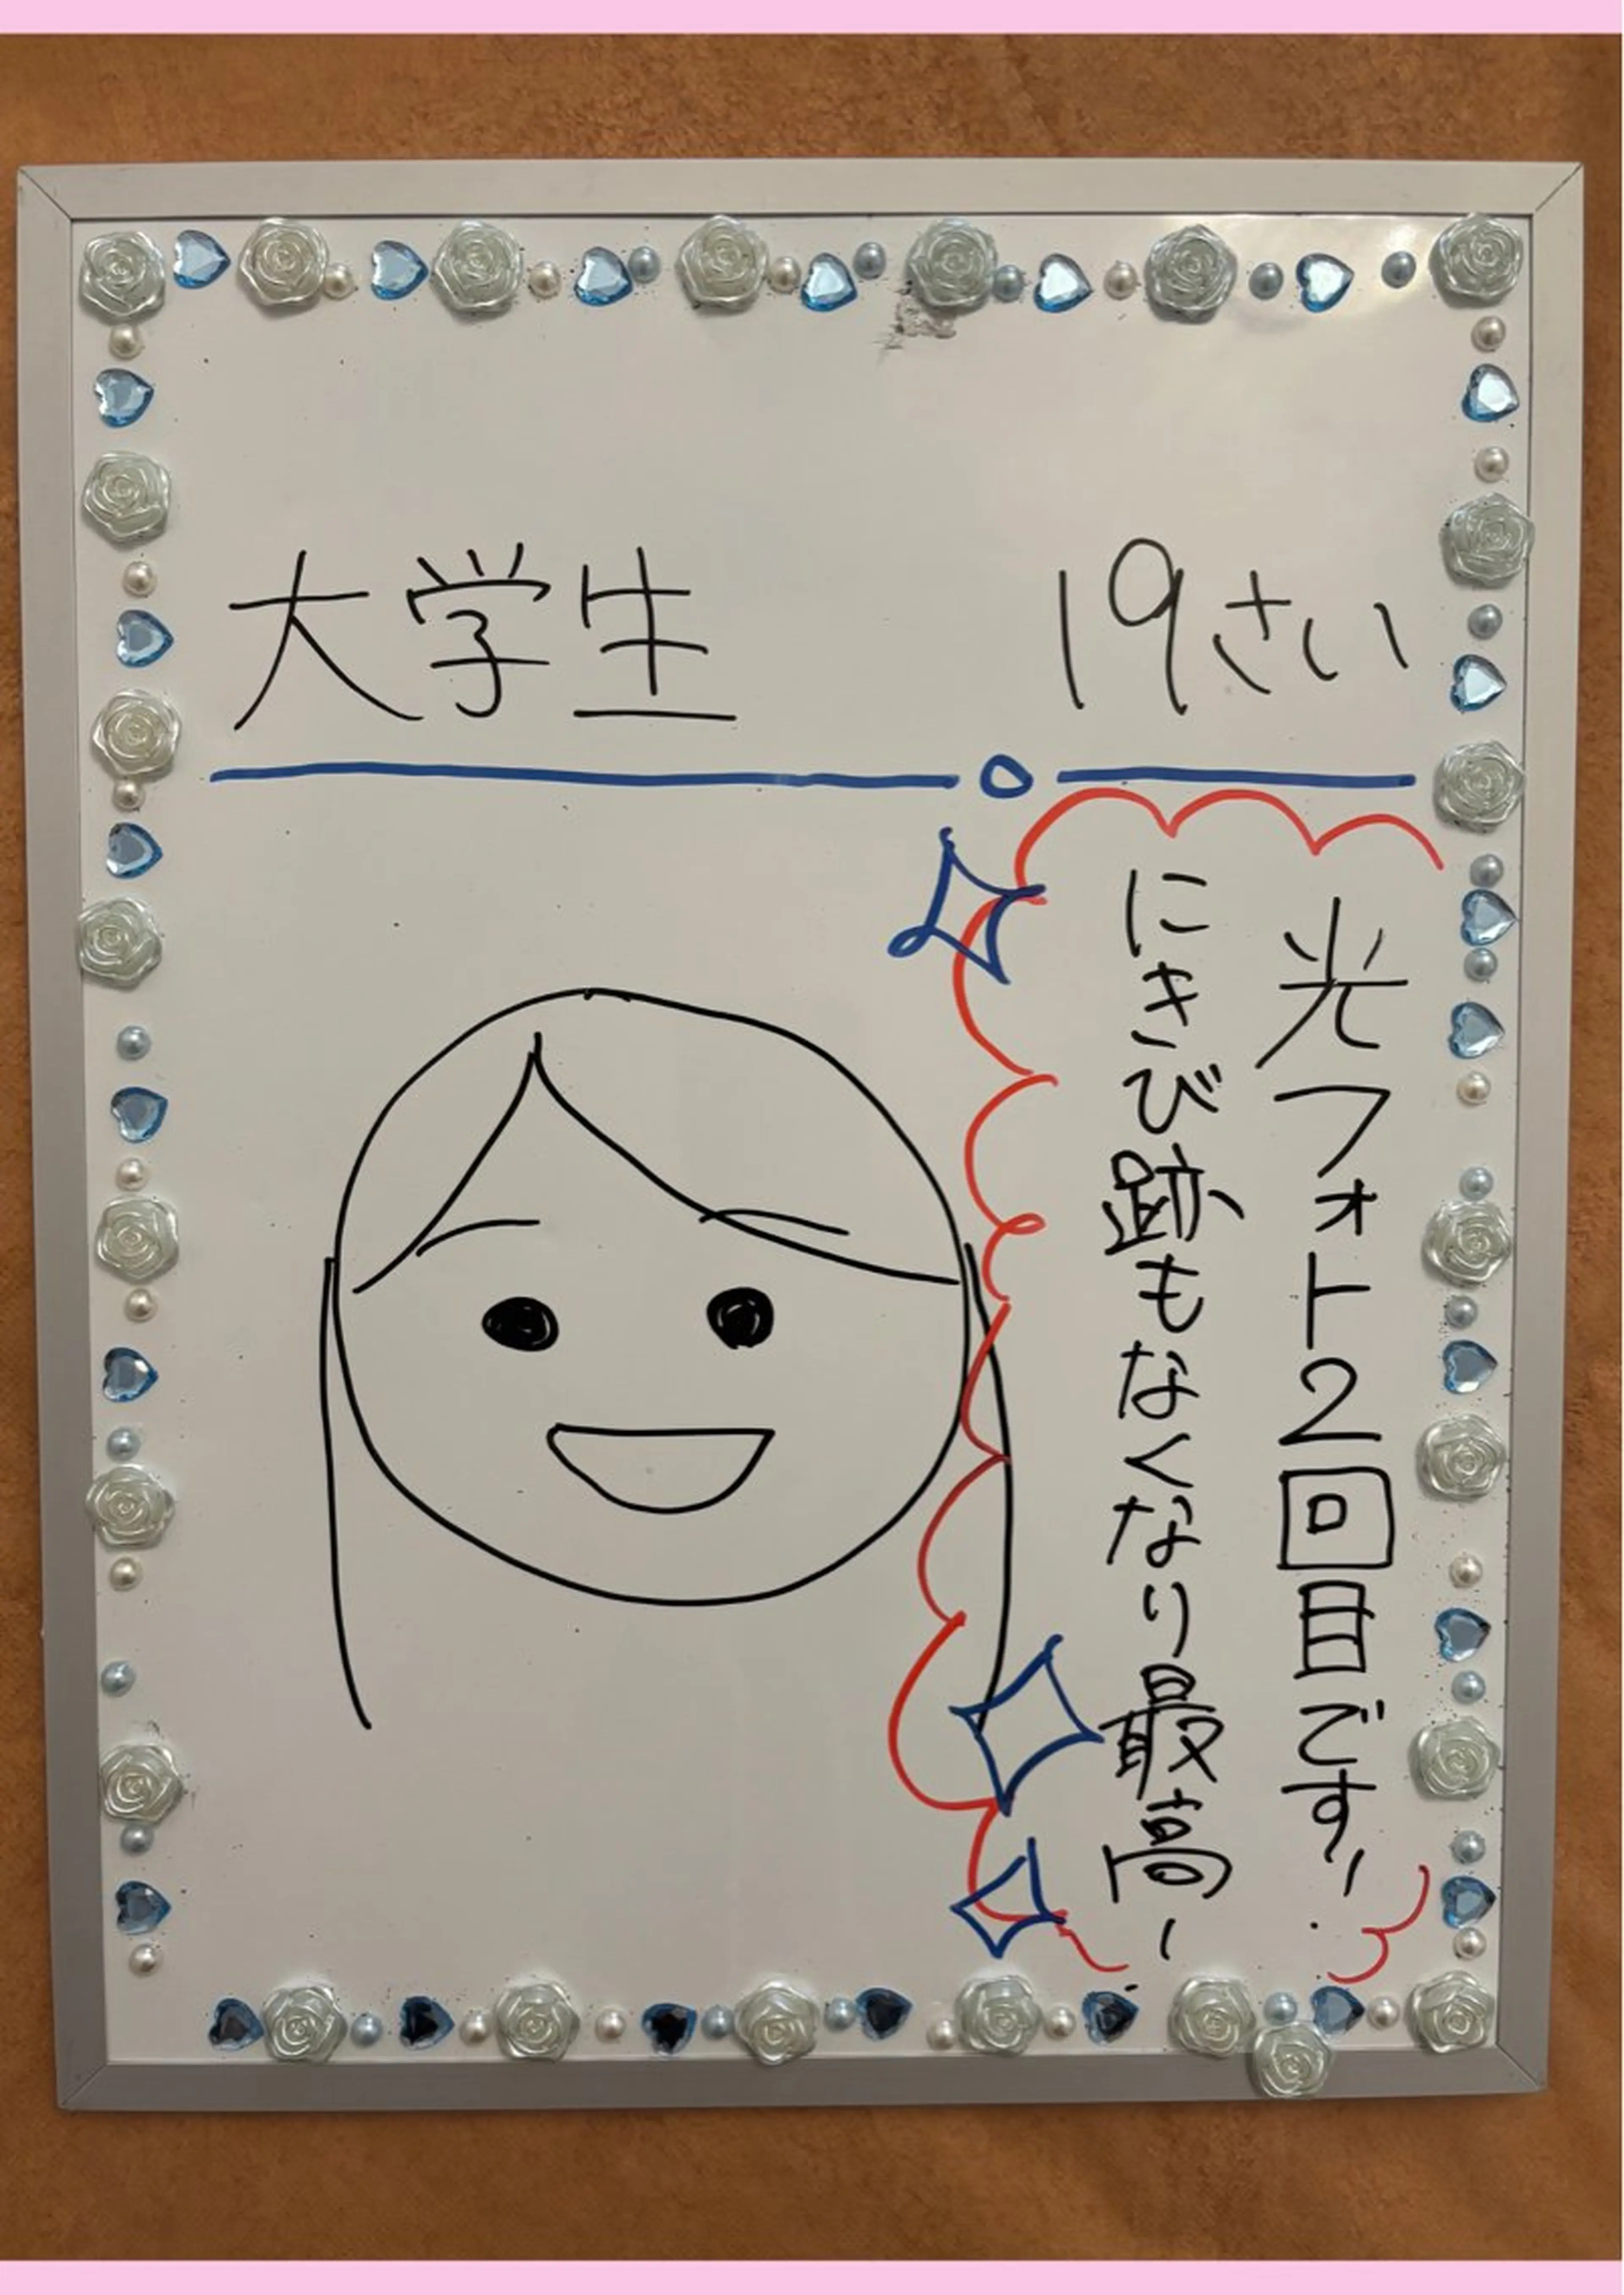 大学生 19さい
光フォト2回目です!
にきび跡もなくなり最高!